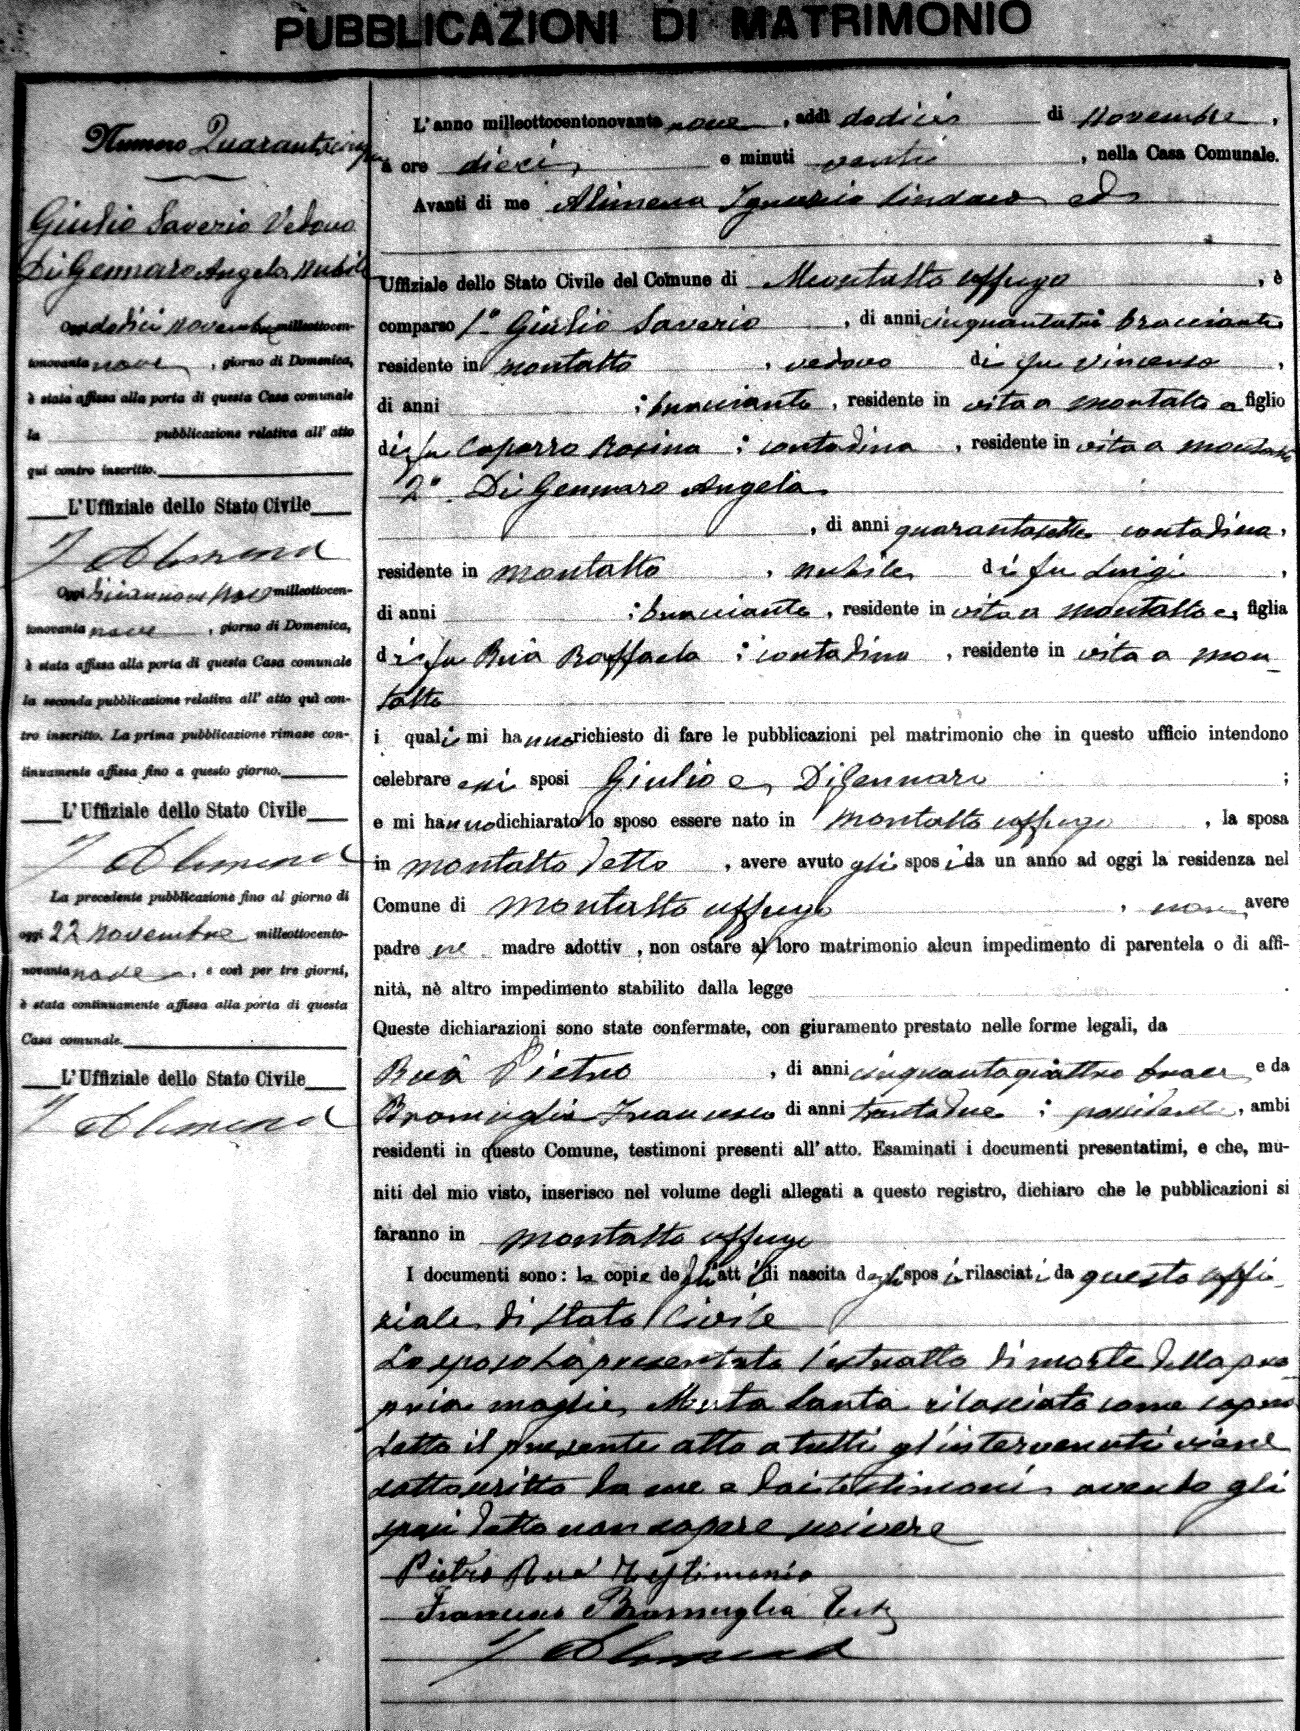 PUBBLICAZIONI DI MATRIMONIO
Numero Quarantacinque
Giulio Saverio Vedovo
Di Gennaro Angela Nubile
Oggi dodici novembre milleottocen-
tonovanta nove, giorno di Domenica,
è stata affissa alla porta di questa Casa comunale
la pubblicazione relativa all' atto
qui contro inscritto.
L'Uffiziale dello Stato Civile
I Alimena
Oggi diciannove nove milleottocen-
tonovanta nove, giorno di Domenica,
è stata affissa alla porta di questa Casa comunale
la seconda pubblicazione relativa all' atto quì con-
tro inscritto. La prima pubblicazione rimase con-
tinuamente affissa fino a questo giorno.
L'Uffiziale dello Stato Civile
I Alimena
La precedente pubblicazione fino al giorno di
oggi 22 novembre milleottocento-
novanta nove, e così per tre giorni,
è stata continuamente affissa alla porta di questa
Casa comunale.
L'Uffiziale dello Stato Civile
I Alimena
L'anno milleottocentonovanta nove, addì dodici di Novembre,
a ore dieci e minuti venti, nella Casa Comunale.
Avanti di me Alimena Ignazio Sindaco ed
Uffiziale dello Stato Civile del Comune di Montalto uffugo, è
comparso 1° Giulio Saverio, di anni cinquantatre bracciante
residente in Montalto, vedovo di fu Vincenzo,
di anni ; bracciante, residente in vita a Montalto e figlio
di fu Caperro Rosina ; contadina, residente in vita a Montalto
2° Di Gennaro Angela
, di anni quarantasette contadina,
residente in Montalto, nubile di fu Luigi,
di anni ; bracciante, residente in vita a Montalto e, figlia
di fu Ruà Raffaela ; contadina, residente in vita a Mon-
talto
i quali mi hanno richiesto di fare le pubblicazioni pel matrimonio che in questo ufficio intendono
celebrare essi sposi Giulio e Di Gennaro ;
e mi hanno dichiarato lo sposo essere nato in Montalto uffugo, la sposa
in Montalto detto, avere avuto gli sposi da un anno ad oggi la residenza nel
Comune di Montalto uffugo, non avere
padre ne madre adottiv , non ostare al loro matrimonio alcun impedimento di parentela o di affi-
nità, nè altro impedimento stabilito dalla legge .
Queste dichiarazioni sono state confermate, con giuramento prestato nelle forme legali, da
Ruà Pietro, di anni cinquantaquattro bracc e da
Bramuglia Francesco di anni trentadue ; possidente, ambi
residenti in questo Comune, testimoni presenti all' atto. Esaminati i documenti presentatimi, e che, mu-
niti del mio visto, inserisco nel volume degli allegati a questo registro, dichiaro che le pubblicazioni si
faranno in Montalto uffugo
I documenti sono: le copie degli atti di nascita degli sposi rilasciati da questo uffi-
ziale di Stato Civile
Lo sposo ha presentato l'estratto di morte della pro-
pria moglie Santa rilasciato come sopra
Letto il presente atto a tutti gl'intervenuti viene
sottoscritto da me e dai testimoni avendo gli
sposi detto non sapere scrivere
Pietro Ruà Testimonio
Francesco Bramuglia Test
I Alimena